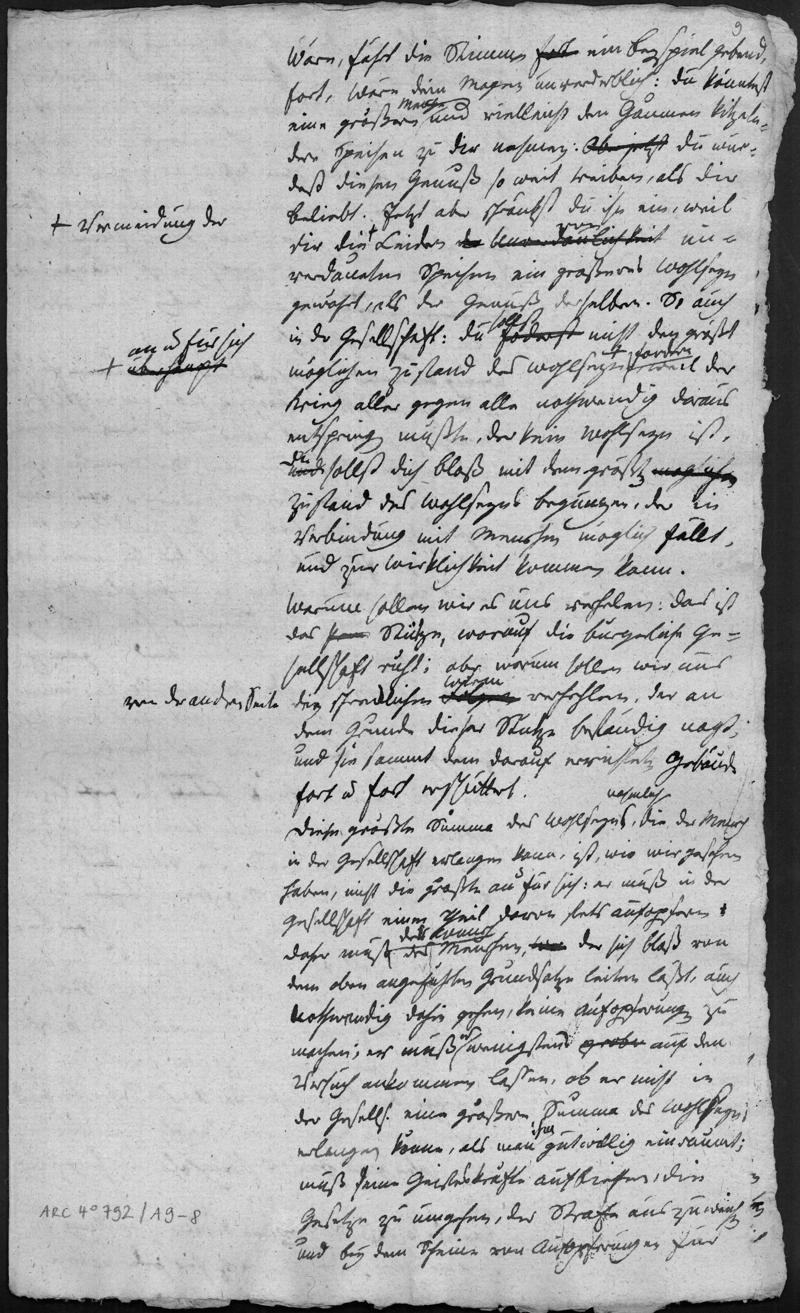 9
Wäre, fährt die Stimme fort ein Beyspiel gebend,
fort, wäre dein Magen unverderblich: du könntest
eine größere Menge und vielleicht den Gaumen kitzeln-
dere Speisen zu dir nehmen. Ob jetzt du wür-
dest diesen Genuß so weit treiben, als dir
beliebt. Jetzt aber schränkst du ihn ein, weil
+ Vermeidung der
dir die + Leiden der Unverdaulichkeit un-
verdauten Speisen ein größeres Wohlseyn
gewährt, als der Genuß derselben. So auch
in der Gesellschaft: du sollst foderst nicht den größt
an u für sich
+ überhaupt
möglichen Zustand des Wohlseyns + fordern weil der
Krieg aller gegen alle nothwendig daraus
entspringen müßte, der kein Wohlseyn ist.
Du und sollst dich bloß mit dem größten möglichen
Zustand des Wohlseyns begnügen, der in
Verbindung mit Menschen möglich fällt,
und zur Wirklichkeit kommen kann.
Warum sollen wir es uns verhelen: das ist
das Stütze, worauf die bürgerliche Ge-
sellschaft ruht; aber warum sollen wir uns
von der andren Seite
den schrecklichen Wurm verhehlen, der an
dem Grunde dieser Stütze beständig nagt,
und sie sammt dem darauf errichteten Gebäude
fort u fort erschüttert.
Diese größte Summe des Wohlseyns, die der Mensch nehmlich
in der Gesellschaft erlangen kann, ist, wie wir gesehen
haben, nicht die größte an u für sich: er muß in der
Gesellschaft einen Theil davon stets aufopfern:
daher muß der Mensch, der sich bloß von
dem oben angeführten Grundsatze leiten läßt, auch
nothwendig dahin gehen, keine Aufopferung zu
machen; er muß es wenigstens auf den
Versuch ankommen lassen, ob er nicht in
der Gesells. eine größere Summe des Wohlseyns
erlangen könne, als man ihm gutwillig einräumt;
muß seine Geisteskräfte aufbiethen, die
Gesetze zu umgehen, der Strafe auszuweichen
und bey dem Scheine von Aufopferungen für
ARC 4° 792 / A9-8